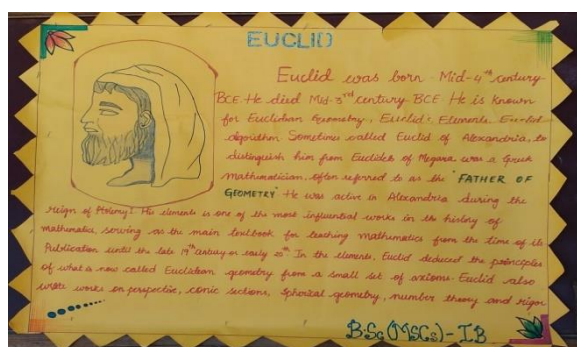 EUCLID
Euclid was born Mid-4th century
BCE. He died Mid-3rd century BCE. He is known
for Euclidian Geometry, Euclid's Elements, Euclid
algorithm Sometimes called Euclid of Alexandria, to
distinguish him from Eucleides of Megara was a Greek
mathematician, often referred to as the "FATHER OF
GEOMETRY" He was active in Alexandria during the
reign of Ptolemy I. His elements is one of the most influential works in the history of
mathematics, serving as the main textbook for teaching mathematics from the time of its
Publication until the late 19th century or early 20th. In the elements, Euclid deduced the principles
of what is now called Euclidian geometry from a small set of axioms. Euclid also
wrote works on perspective, conic sections, spherical geometry, number theory and rigor
B.Sc(MSCs)-IB